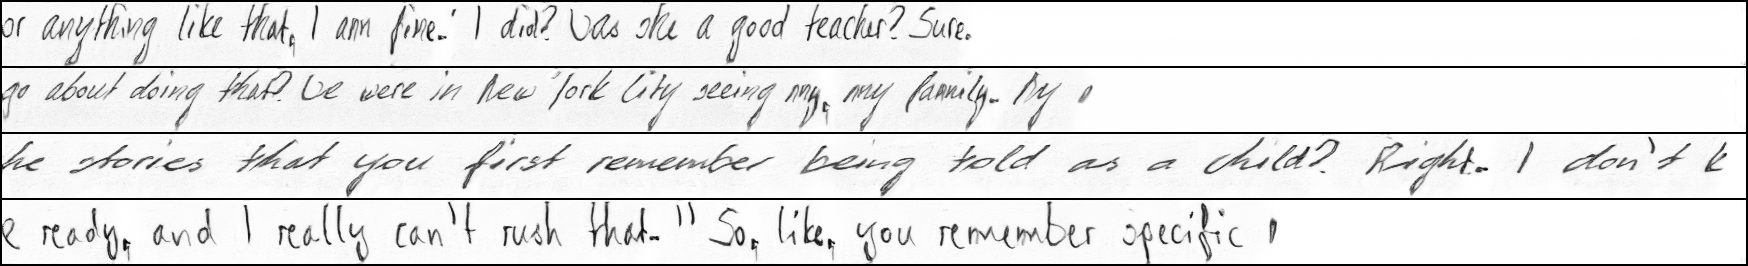 or anything like that, I am fine." I did? Was she a good teacher? Sure.
go about doing that? We were in New York City seeing my, my family. My
he stories that you first remember being told as a child? Right. I don't k
e ready, and I really can't rush that." So, like, you remember specific